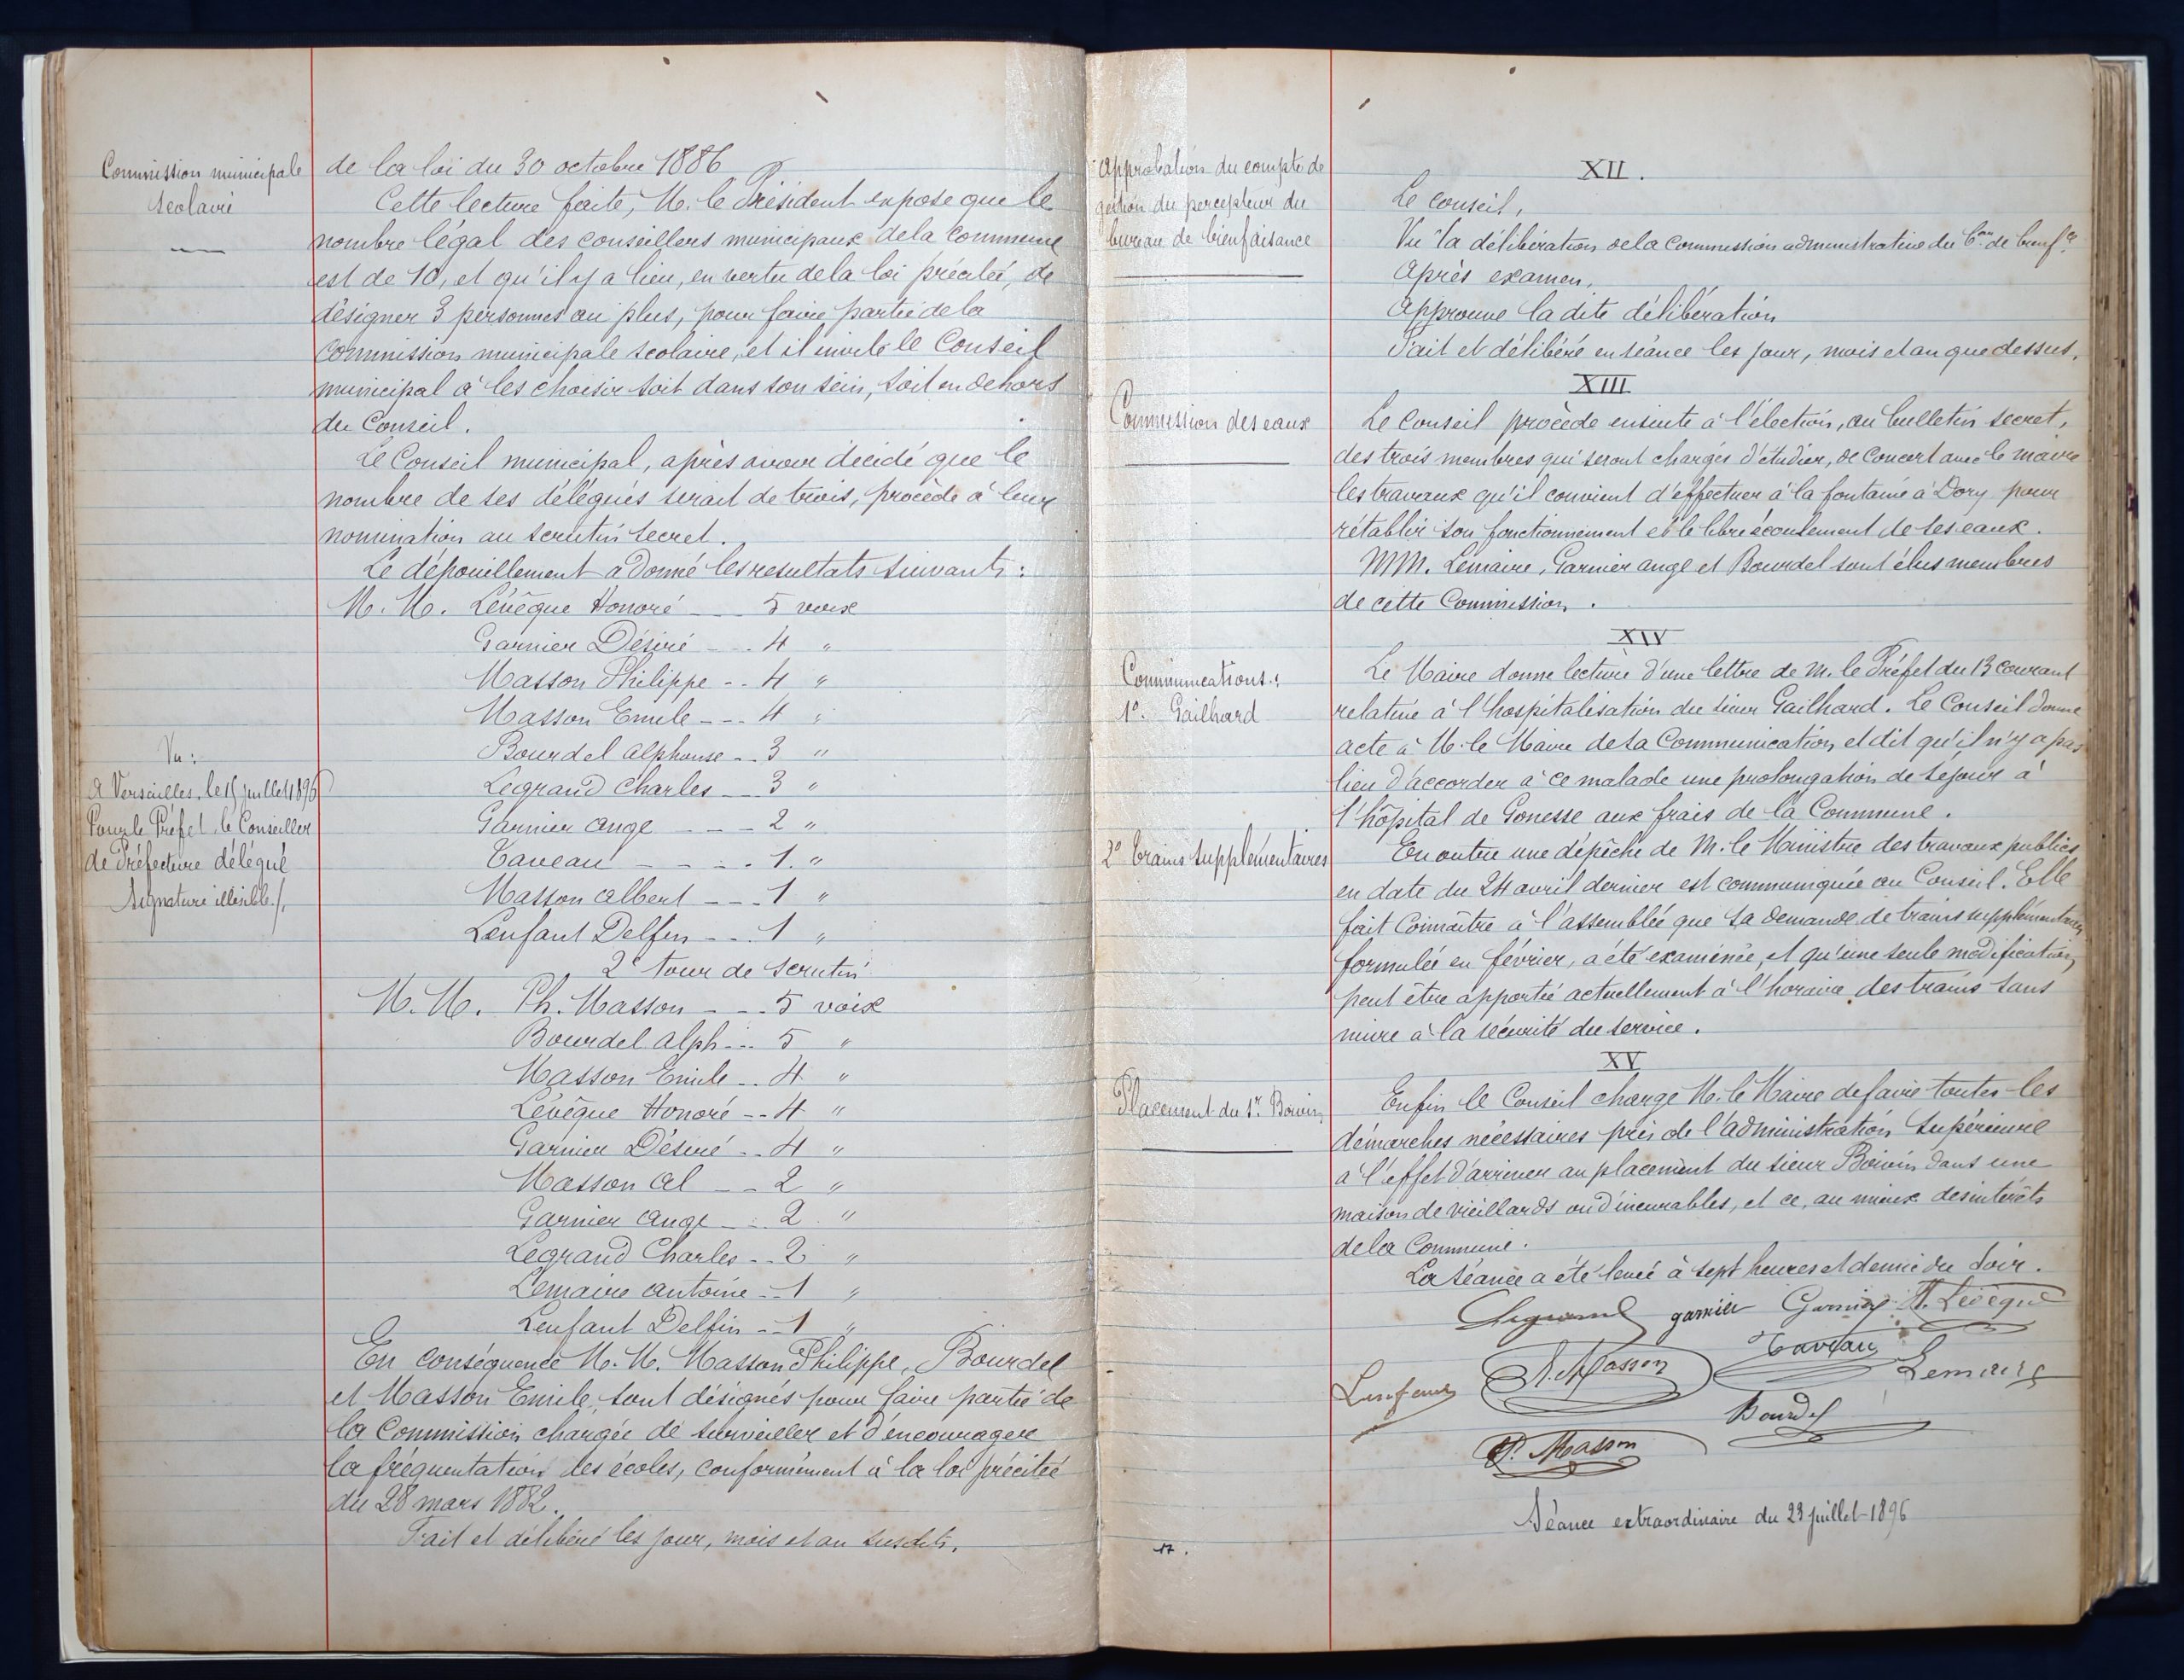 Commission municipale
scolaire
de la loi du 30 octobre 1886
Cette lecture faite, M. le Président expose que le
nombre légal des conseillers municipaux de la commune
est de 10, et qu'il y a lieu, en vertu de la loi précitée, de
désigner 3 personnes au plus, pour faire partie de la
commission municipale scolaire, et il invite le Conseil
municipal à les choisir soit dans son sein, soit en dehors
du Conseil.
Le Conseil municipal, après avoir décidé que le
nombre de ses délégués serait de trois, procède à leur
nomination au scrutin secret.
Le dépouillement a donné les resultats suivants :
M. M. Lévêque Honoré --- 5 voix
Garnier Désiré --- 4 "
Masson Philippe -- 4 "
Masson Emile --- 4 "
Bourdel Alphonse -- 3 "
Legrand Charles -- 3 "
Garnier Ange --- 2 "
Taveau ---- 1. "
Masson Albert --- 1 "
Lenfant Delfin --- 1 "
2e tour de scrutin
M. M. Ph. Masson --- 5 voix
Bourdel Alph --- 5 "
Masson Emile -- 4 "
Lévêque Honoré -- 4 "
Garnier Désiré -- 4 "
Masson Al -- 2 "
Garnier Ange -- 2 "
Legrand Charles -- 2 "
Lemaire Antoine -- 1 "
Lenfant Delfin -- 1 "
En conséquence M. M. Masson Philippe, Bourdel
et Masson Emile, sont désignés pour faire partie de
la Commission chargée de surveiller et d'encourager
la fréquentation des écoles, conformément à la loi précitée
du 28 mars 1882.
Fait et délibéré les jour, mois et an susdits.
Vu :
A Versailles, le 15 juillet 1896
Pour le Préfet, le Conseiller
de Préfecture délégué
Signature illisible ./.
Approbation du compte de
gestion du percepteur du
bureau de bienfaisance
XII.
Le conseil,
Vu la délibération de la Commission administrative du Bau de bienfce
Après examen,
Approuve la dite délibération
Fait et délibéré en séance les jour, mois et an que dessus.
XIII
Commission des eaux
Le Conseil procède ensuite à l'élection, au bulletin secret,
des trois membres qui seront chargés d'étudier, de concert avec le maire
les travaux qu'il convient d'effectuer à la fontaine à Dory pour
rétablir son fonctionnement et le libre écoulement de ses eaux.
MM. Lemaire, Garnier Ange et Bourdel sont élus membres
de cette Commission.
XIV
Communications :
1º. Gailhard
Le Maire donne lecture d'une lettre de M. le Préfet du 13 courant
relative à l'hospitalisation du sieur Gailhard. Le Conseil donne
acte à M. le Maire de sa Communication, et dit qu'il n'y a pas
lieu d'accorder à ce malade une prolongation de séjour à
l'hôpital de Gonesse aux frais de la Commune.
2º trains supplémentaires
En outre une dépêche de M. le Ministre des travaux publics
en date du 24 avril dernier est communiquée au Conseil. Elle
fait connaître à l'assemblée que sa demande de trains supplémentaires
formulée en février, a été examinée, et qu'une seule modification
peut être apportée actuellement à l'horaire des trains sans
nuire à la sécurité du service.
XV
Placement du Sr. Boivin
Enfin le Conseil charge M. le Maire de faire toutes les
démarches nécessaires près de l'administration supérieure
à l'effet d'arriver au placement du sieur Boivin dans une
maison de vieillards ou d'incurables, et ce, au mieux des intérêts
de la Commune.
La séance a été levée à sept heures et demie du soir.
Legrand garnier Garnier H. Lévêque
Lenfant A. Masson Taveau Lemaire
Bourdel
P. Masson
Séance extraordinaire du 23 juillet 1896
17.